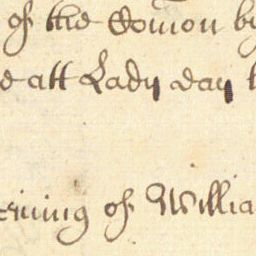 of the Com̃on by
e att Lady day
erning of Willia